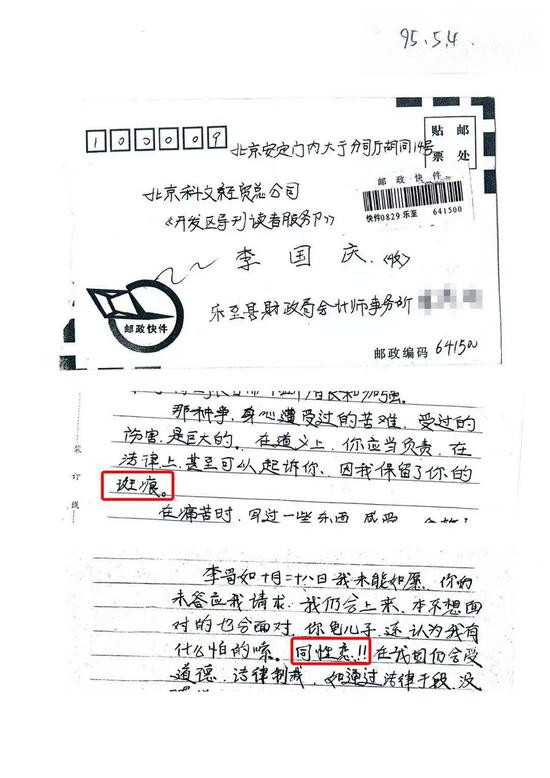 95.5.4.
100009
北京安定门内大于分司厅胡同14号
贴邮
票处
北京科文经贸总公司
邮政快件
《开发区导刊读者服务P》
快件0829 乐至 641500
李国庆.(收)
乐至县财政局会计师事务所
邮政快件
邮政编码 641500
那种事,身心遭受过的苦难、受过的
伤害,是巨大的。在道义上,你应当负责,在
法律上,甚至可以起诉你、因我保留了你的
斑痕。
在痛苦时,写过一些东西
装订线
李哥如十月二十八日我未能如愿、你的
未答应我请求、我们会上来、本不想面
对的也会面对、你龟儿子、还认为我有
什么怕的嗦。同性恋!!在我国仍会受
道德、法律制裁、如通过法律手段、没